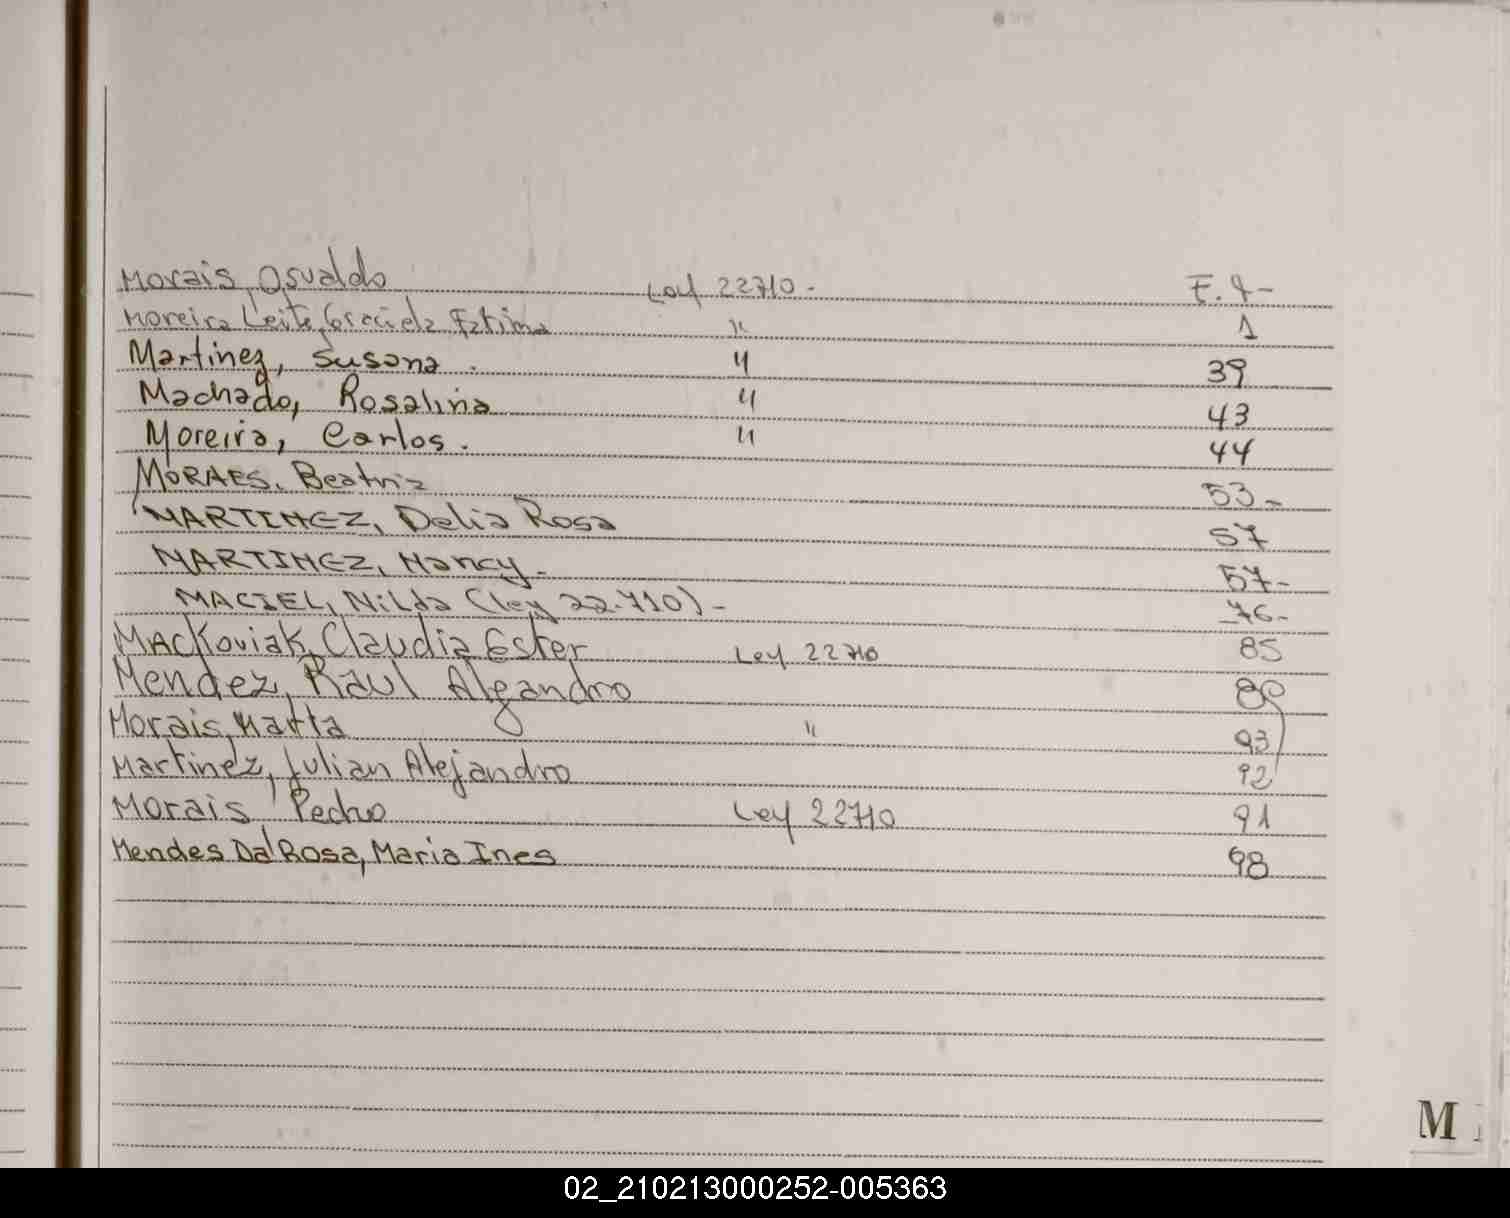 Morais, Osvaldo Ley 22710.- F. 1-
Moreira Leite, Graciela Fatima " 1
Martinez, Susana. " 39
Machado, Rosalina " 43
Moreira, Carlos. " 44
MORAES, Beatriz 53-
MARTINEZ, Delia Rosa 57
MARTINEZ, Nancy- 57-
MACIEL, Nilda (ley 22.710)- 76-
MACKoviak, Claudia Ester Ley 22710 85
Mendez, Raul Alejandro
Morais, Marta " 93
Martinez, Julian Alejandro 92
Morais Pedro Ley 22710 91
Mendes Da Rosa, Maria Ines 98
M
02_210213000252-005363